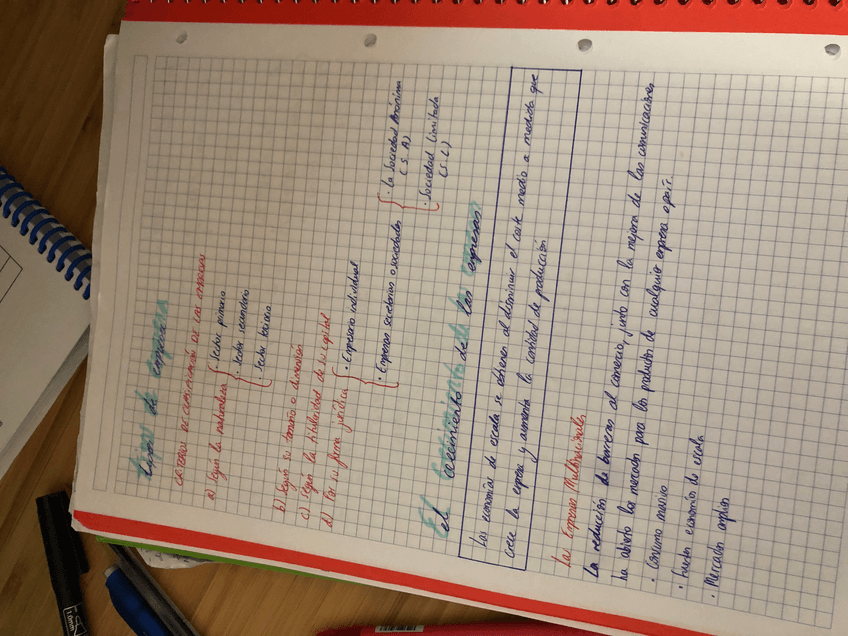 Tipos de empresa
CRITERIOS DE CLASIFICACIÓN DE LAS EMPRESAS
a) Según la naturaleza
· Sector primario
· Sector secundario
· Sector terciario
b) Según su tamaño o dimensión
c) Según la titularidad de su capital
d) Por su forma jurídica
· Empresario individual
· Empresas societarias o sociedades
· La Sociedad Anónima
(S.A)
· Sociedad Limitada
(S.L)
El crecimiento de las empresas
Las economías de escala se obtienen al disminuir el coste medio a medida que
crece la empresa y aumenta la cantidad de producción
La Empresa Multinacional
La reducción de barreras al comercio, junto con la mejora de las comunicaciones
ha abierto los mercados para los productos de cualquier empresa o país.
· Consumo masivo
· Fuertes economías de escala
· Mercados amplios
1.0mm